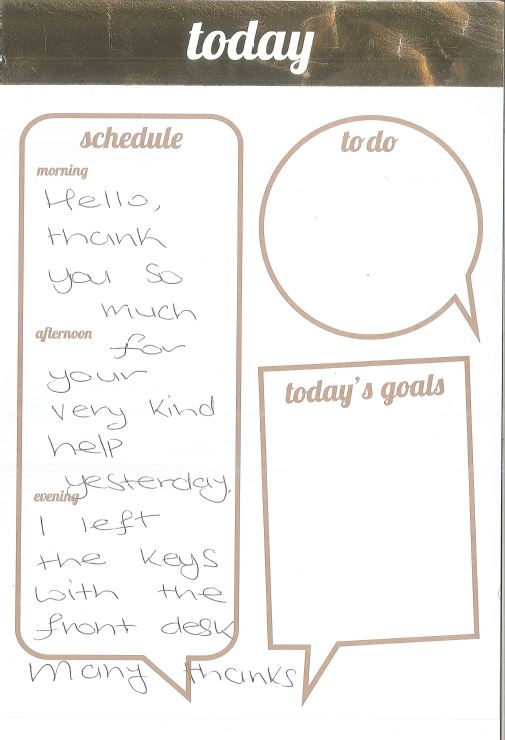 today
schedule
morning
Hello,
thank
you so
much
afternoon
for
your
very kind
help
yesterday,
evening
I left
the keys
with the
front desk
many thanks
to do
today's goals